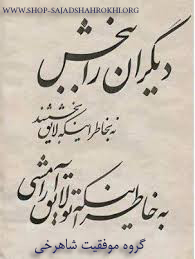 WWW.SHOP-SAJADSHAHROKHI.ORG
دیگران را ببخش
نه بخاطر اینکه لایق بخششند
به خاطر اینکه تو لایق آرامشی
گروه موفقیت شاهرخی